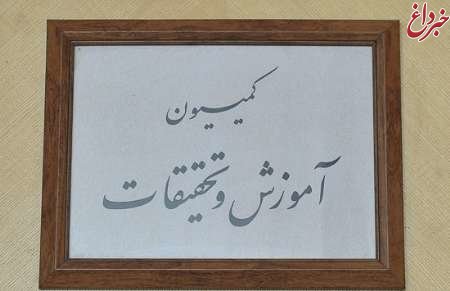 خبرداغ
کمیسیون
آموزش و تحقیقات